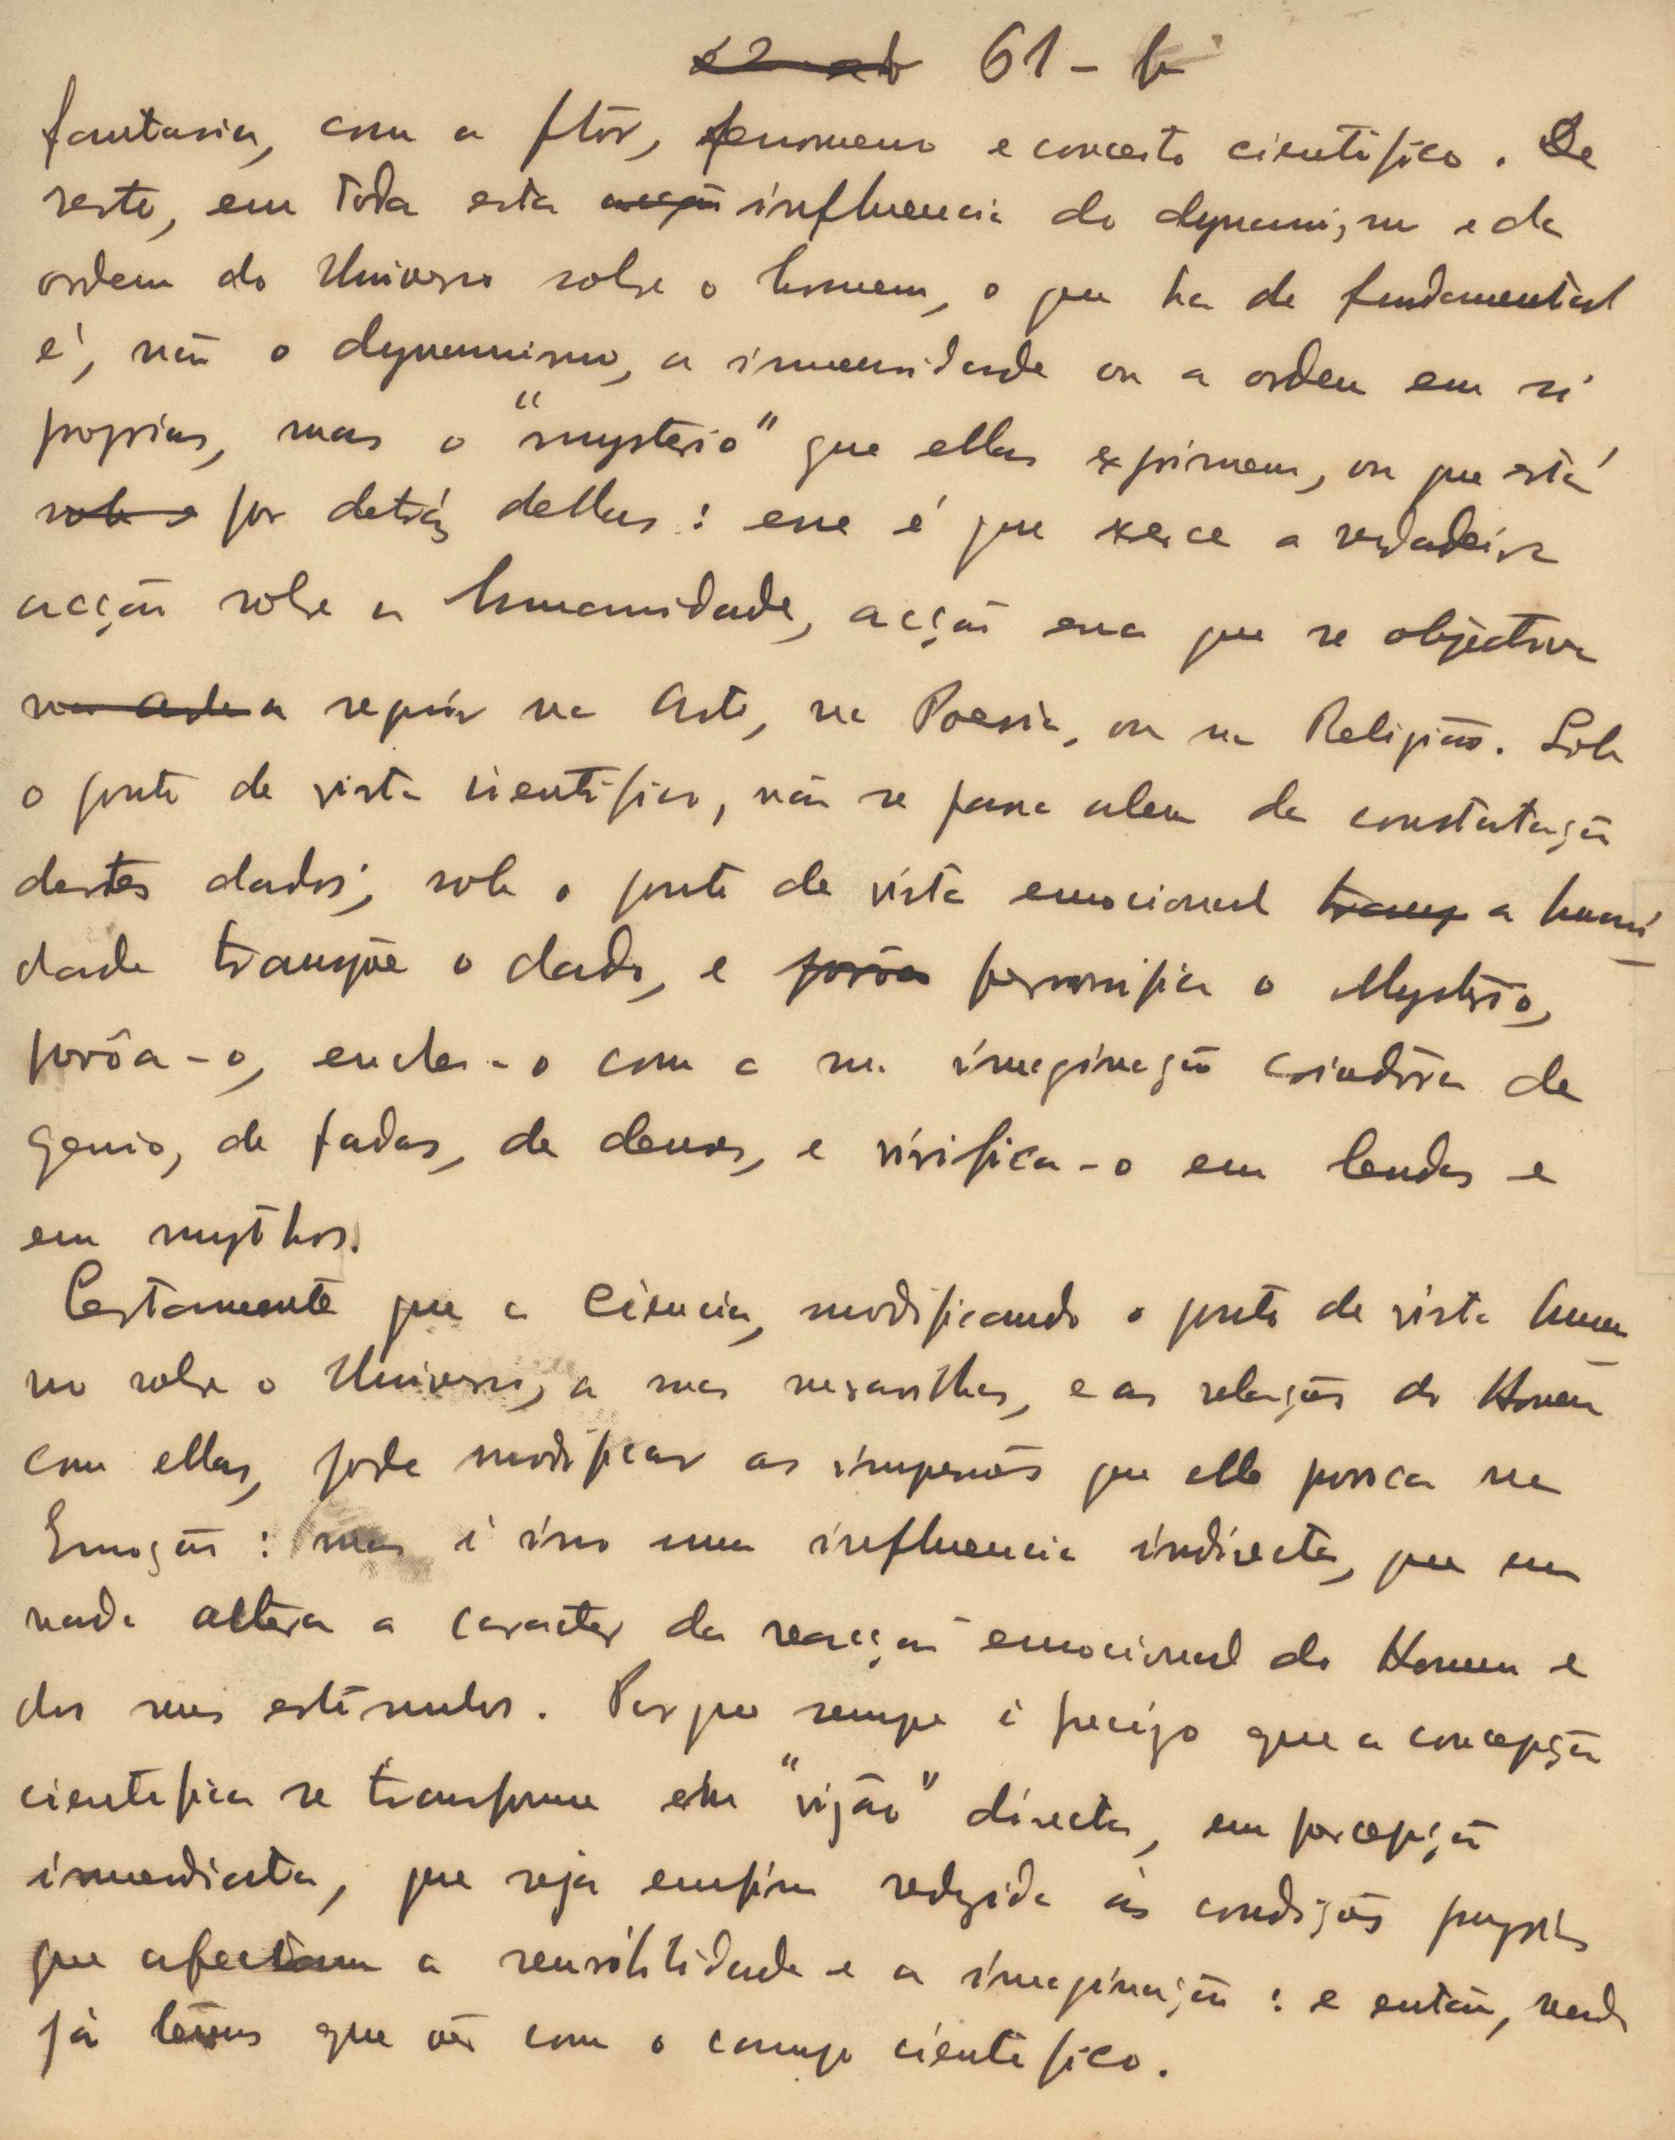 61 - b
fantasia, com a flôr, fenomeno e conceito cientifico. De
resto, em toda esta influencia do dynamismo e da
ordem do Universo sobre o homem, o que ha de fundamental
é, não o dynamismo, a imensidade ou a ordem em si
proprias, mas o "mysterio" que ellas exprimem, ou que está
por detrás dellas: esse é que exerce a verdadeira
acção sobre a humanidade, acção essa que se objectiva
a seguir na Arte, na Poesia, ou na Religião. Sob
o ponto de vista cientifico, não se passa alem da constatação
destes dados; sob o ponto de vista emocional a humani
dade transpõe o dado, e personifica o Mysterio,
povôa-o, enche-o com a sua imaginação criadôra de
genios, de fadas, de deuses, e vivifica-o em lendas e
em mythos.
Certamente que a Ciencia, modificando o ponto de vista huma
no sobre o Universo, as suas maravilhas, e as relações do Homem
com ellas, pode modificar as impressões que ella provoca na
Emoção: mas é isso uma influencia indirecta, que em
nada altera o caracter da reacção emocional do Homem e
dos seus estimulos. Por que sempre é precizo que a concepção
cientifica se transforme em "vizão" directa, em percepção
immediata, que seja emfim reduzida ás condições proprias
que afectam a sensibilidade e a imaginação: e então, nada
já temos que vêr com o campo cientifico.